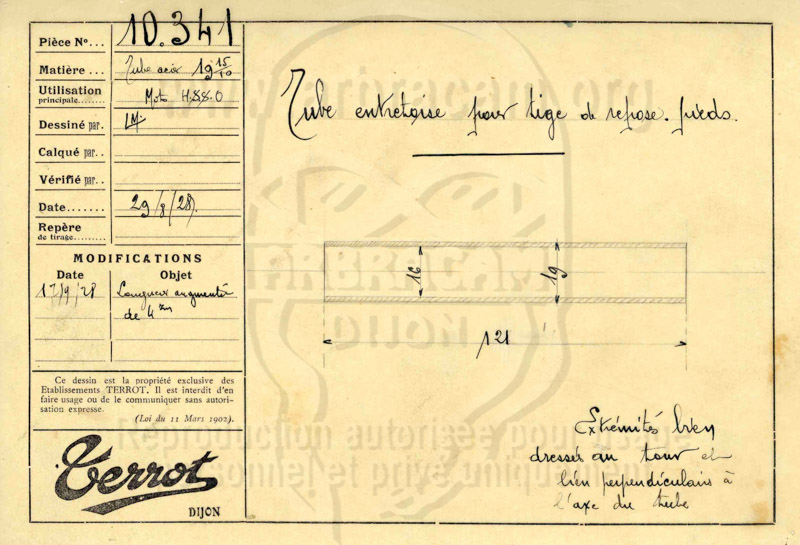 Pièce Nº... 10.341
Matière ... Tube acier 19 15/10
Utilisation
principale........ Moto HSSO
Dessiné par. LM.
Calqué par..
Vérifié par..
Date....... 29/8/28.
Repère
de tirage.........
MODIFICATIONS
Date Objet
17/9/28 Longueur augmenté
de 4 mm
Ce dessin est la propriété exclusive des
Etablissements TERROT. Il est interdit d'en
faire usage ou de le communiquer sans autori-
sation expresse.
(Loi du 11 Mars 1902).
Terrot
DIJON
Tube entretoise pour tige de repose-pieds.
16
19
121
Extrémités bien
dressés au tour et
bien perpendiculaire à
l'axe du tube
www.arbracam.org
ARBRACAM
DIJON
Reproduction autorisée pour usage
personnel et privé uniquement